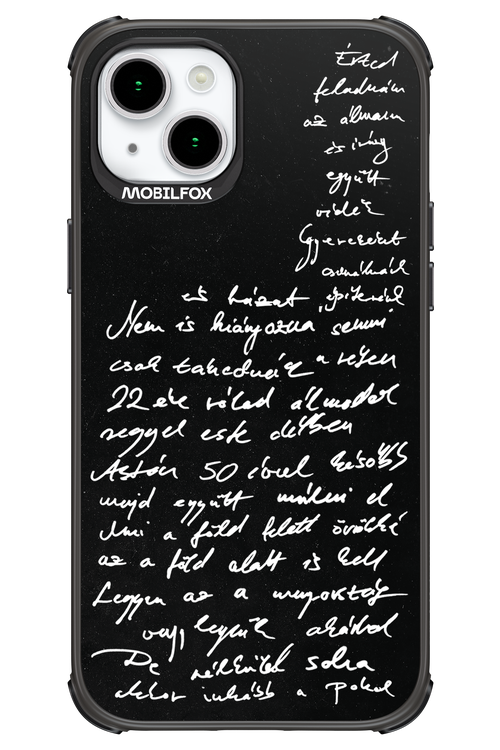 MOBILFOX
Érted
feladnám
az álmaim
és így
együtt
vidék
Gyerekeink
csinálnánk
és házat építenénk
Nem is hiányozna semmi
csak takednék a részem
22 éve rólad álmodok
reggel este délben
Aztán 50 évvel később
majd együtt múlni el
Ami a föld felett örökké
az a föld alatt is kell
Legyen az a mennyország
vagy legyünk akárhol
De nélküled soha
akkor inkább a Pokol